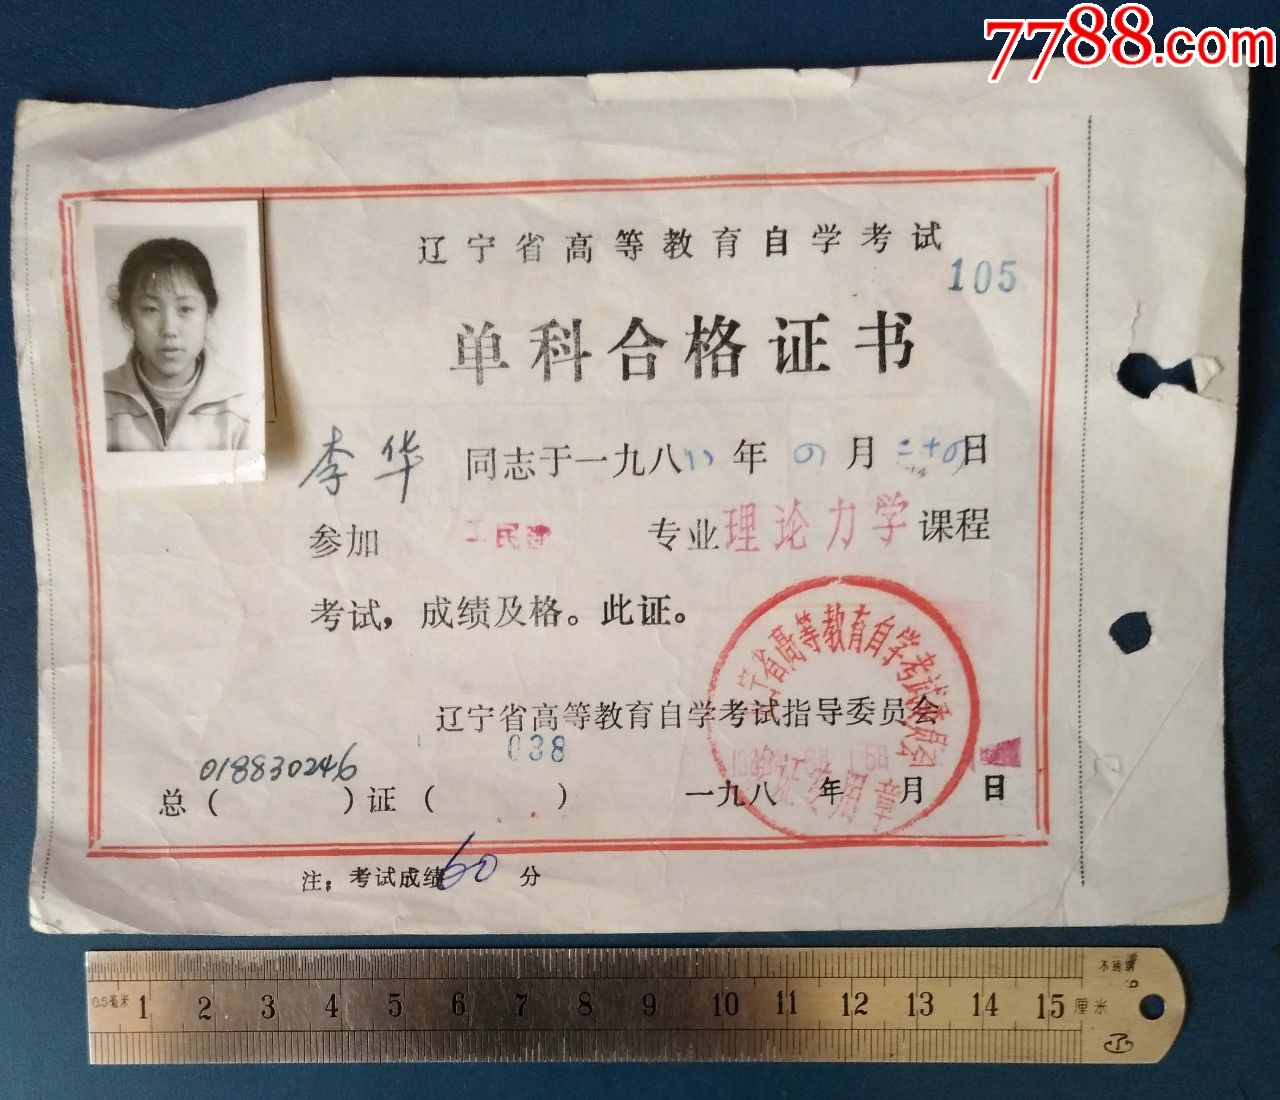 7788.com
辽宁省高等教育自学考试
105
单科合格证书
李华 同志于一九八八年四月二十四日
参加 工民建 专业理论力学课程
考试，成绩及格。此证。
辽宁省高等教育自学考试指导委员会
辽宁省高等教育自学考试委员会
证书专用章
038
018830246
总（ ）证（ ） 一九八 年 月 日
注：考试成绩60 分
0.5毫米 1 2 3 4 5 6 7 8 9 10 11 12 13 14 15 厘米
不锈钢